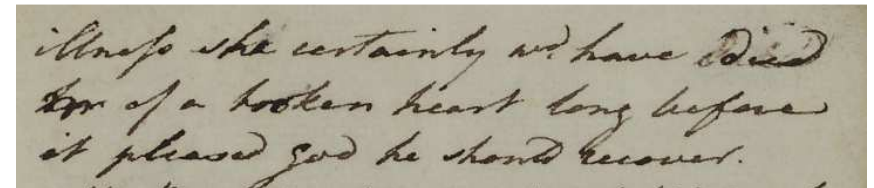 illness she certainly wd. have died
of a broken heart long before
it pleased god he should recover.